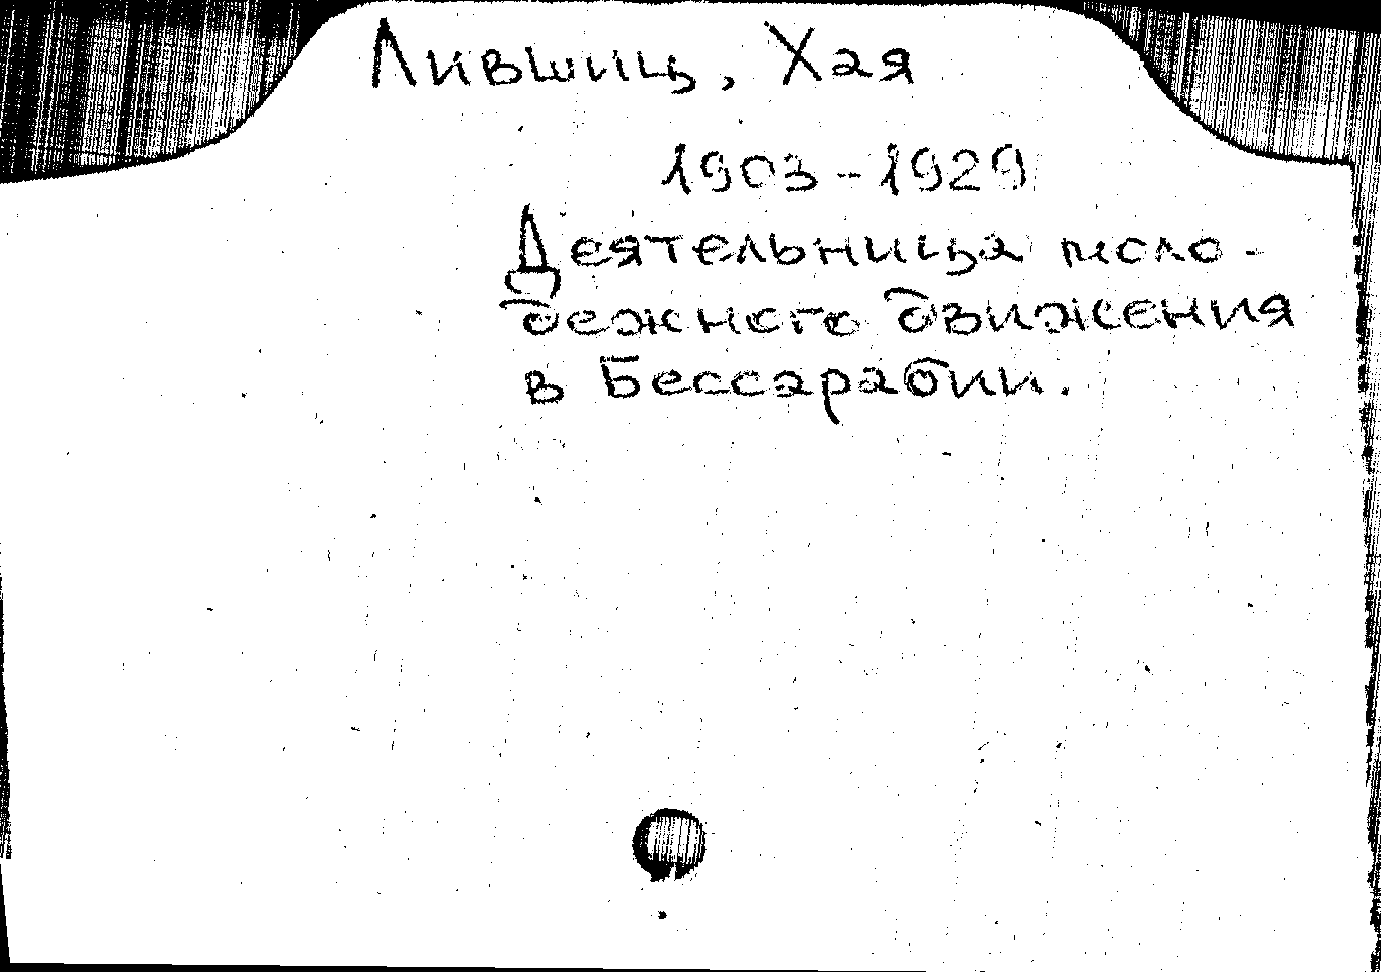 Лившиц, Хая
1903-1929
Деятельница моло-
дежного движения
в Бессарабии.